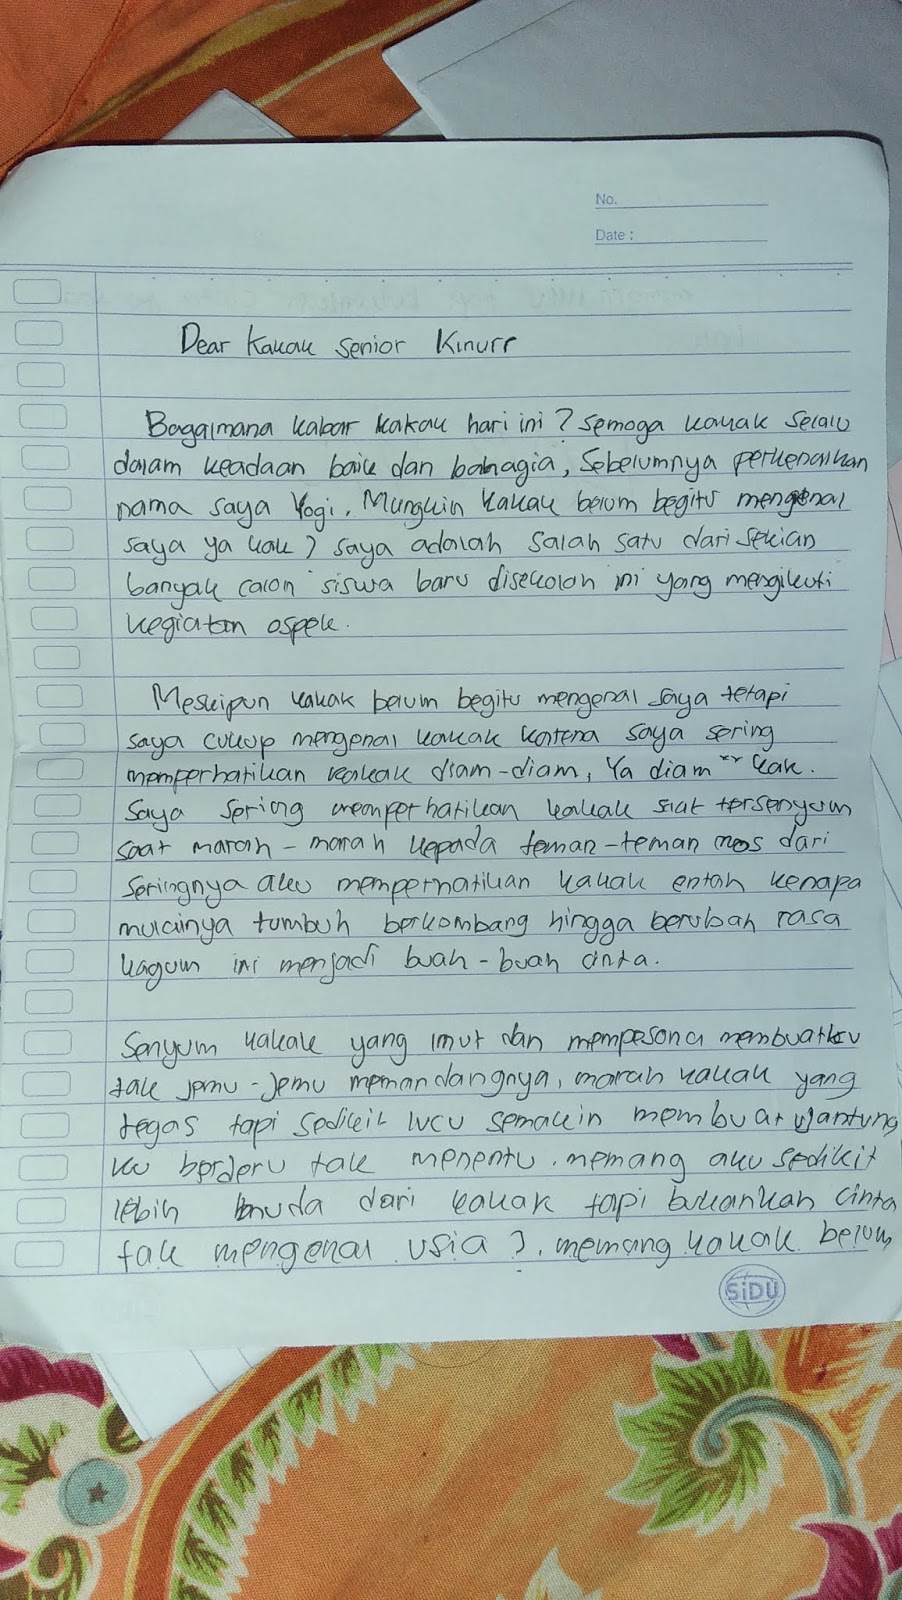 No.
Date :
Dear Kakak Senior Kinurr
Bagaimana kabar kakak hari ini? Semoga kakak selalu
dalam keadaan baik dan bahagia, Sebelumnya perkenalkan
nama saya Yogi, Mungkin kakak belum begitu mengenal
saya ya kak? saya adalah salah satu dari sekian
banyak calon siswa baru disekolah ini yang mengikuti
kegiatan ospek.
Meskipun kakak belum begitu mengenal saya tetapi
saya cukup mengenal kakak karena saya sering
memperhatikan kakak diam-diam, Ya diam" kak.
Saya sering memperhatikan kakak saat tersenyum
saat marah-marah kepada teman-teman mos dari
seringnya aku memperhatikan kakak entah kenapa
mulainya tumbuh berkembang hingga berubah rasa
kagum ini menjadi buah-buah cinta.
Senyum kakak yang imut dan mempesona membuatku
tak jemu-jemu memandangnya, marah kakak yang
tegas tapi sedikit lucu semakin membuat jantung
ku berderu tak menentu. memang aku sedikit
lebih muda dari kakak tapi bukankah cinta
tak mengenal usia?. memang kakak belum
SiDU